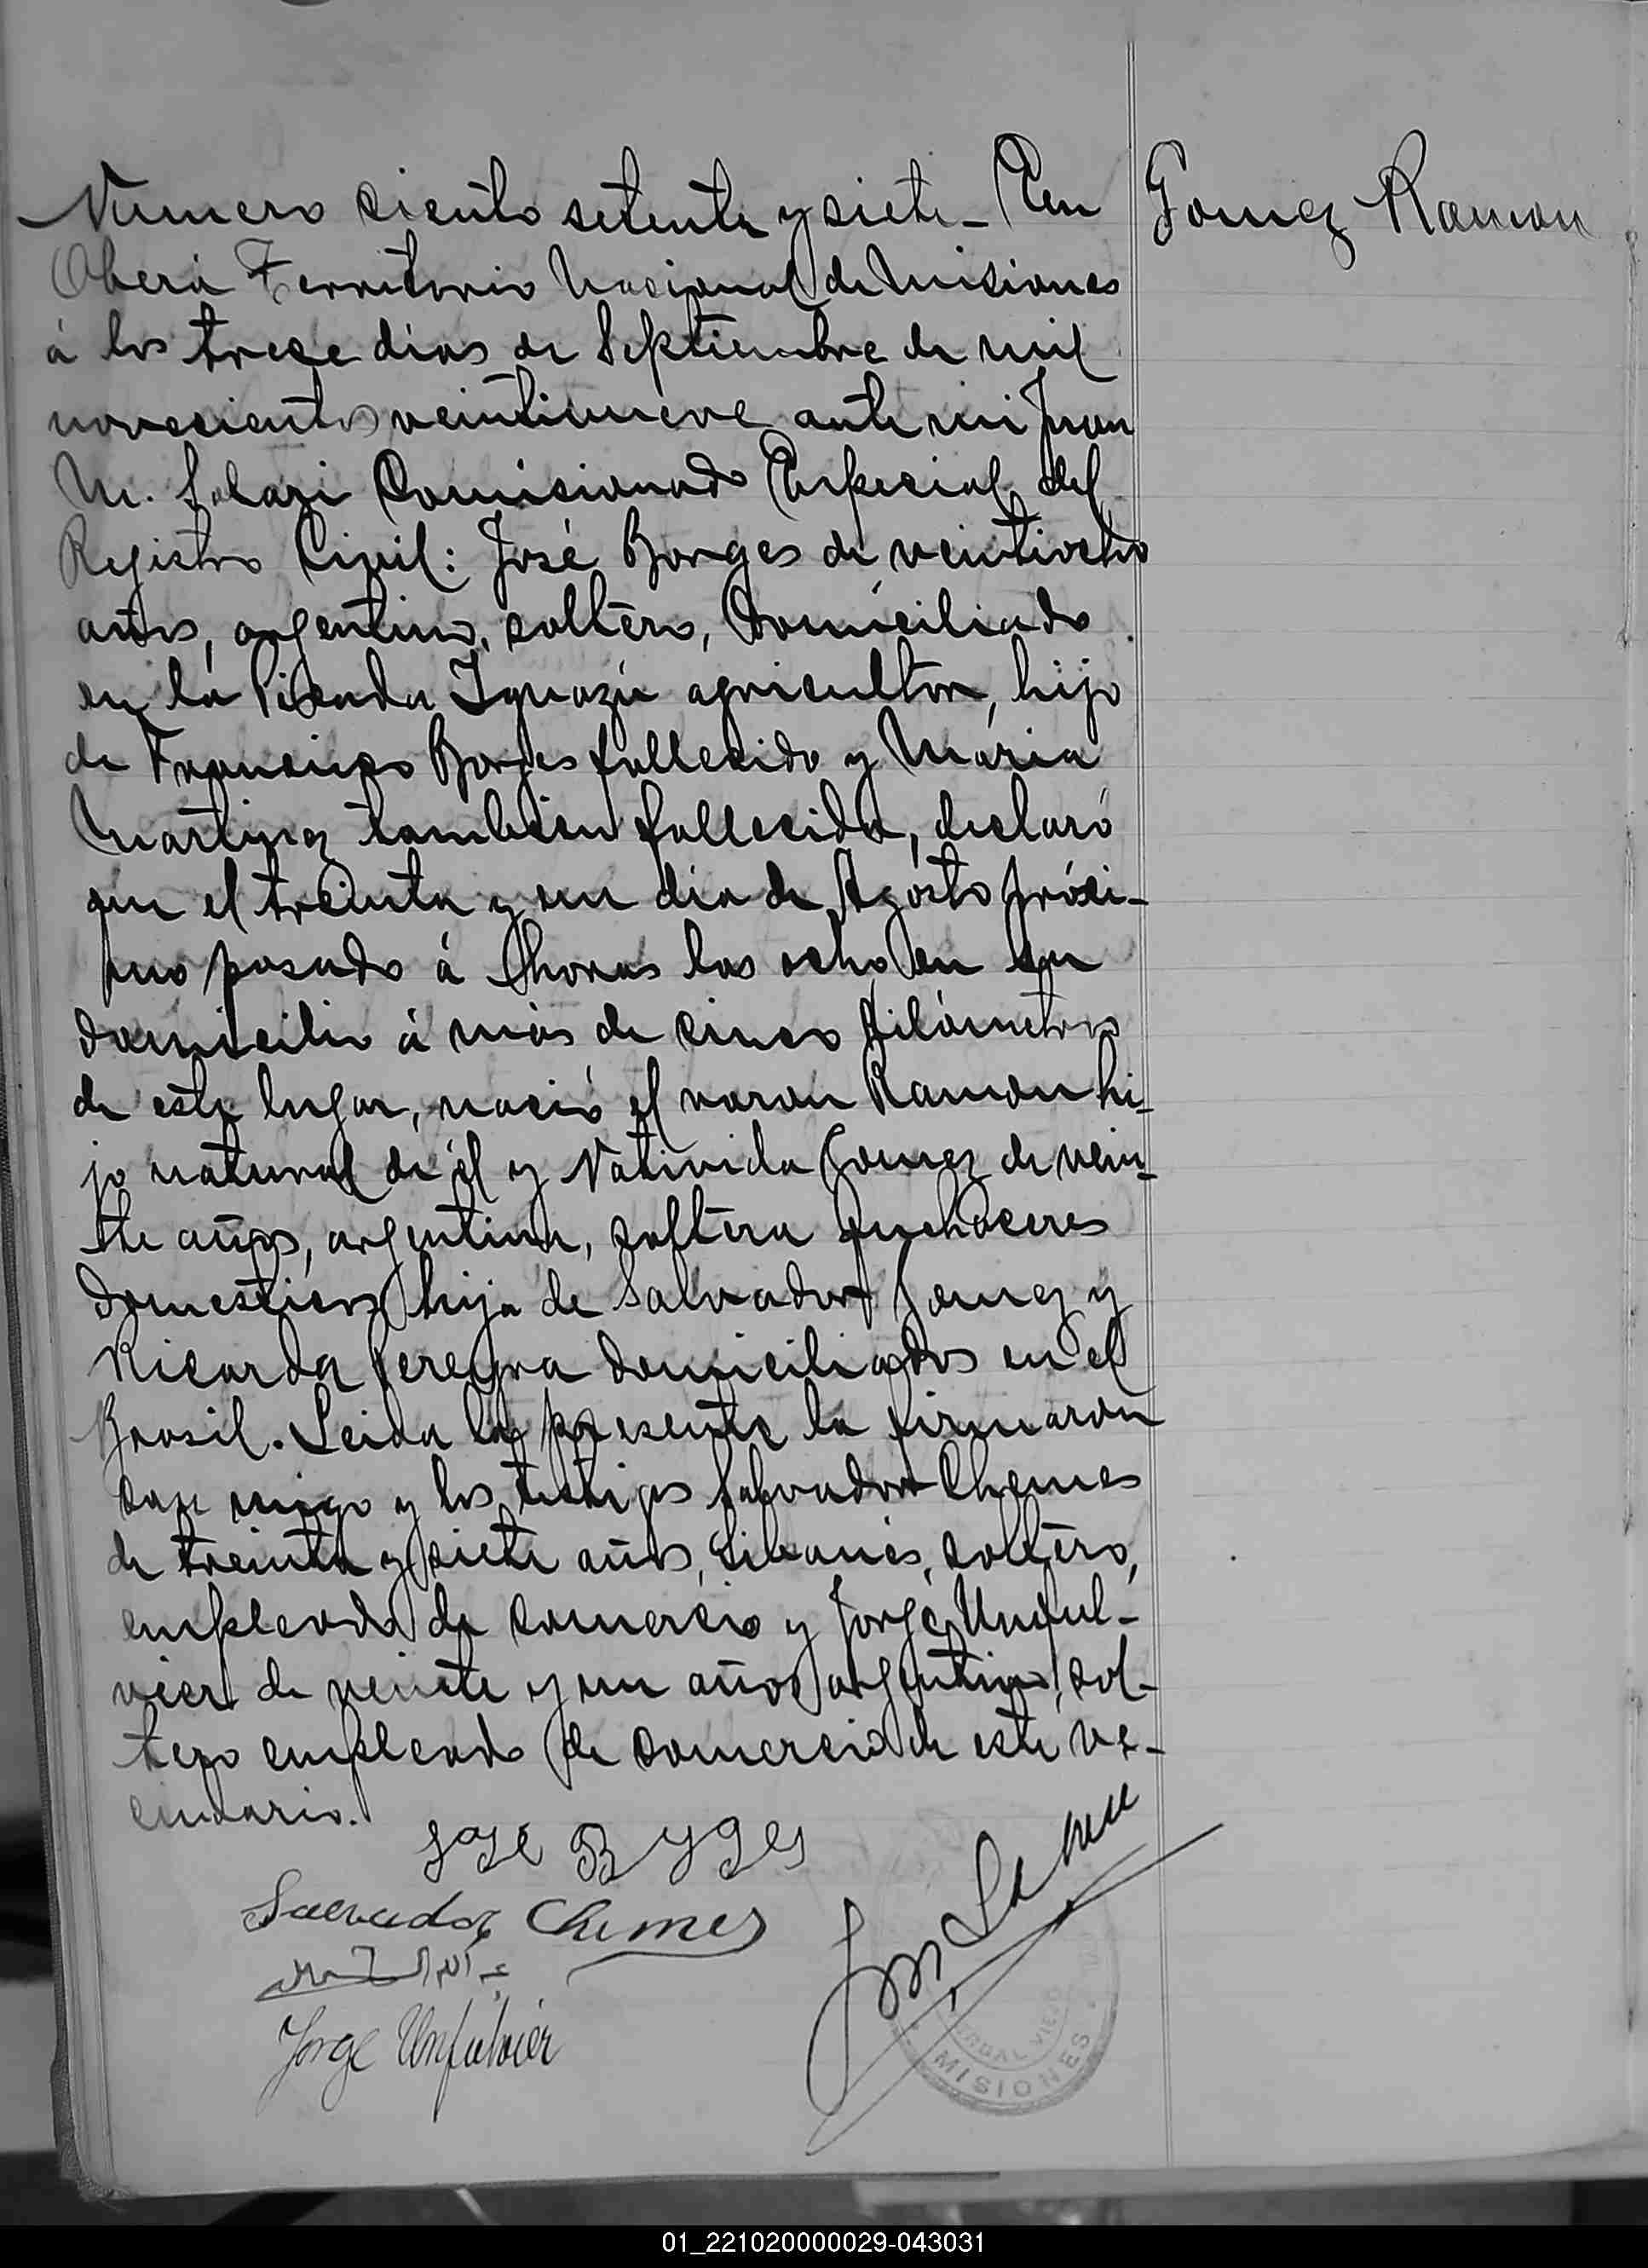 Numero ciento setenta y siete_ En
Gomez Ramon
Oberá Territorio Nacional de Misiones
á los trece dias de Septiembre de mil
novecientos veintinueve ante mi Juan
M. Solari Comisionado Especial del
Registro Civil: José Borges de veintiocho
años, argentino, soltero, domiciliado
en la Picada Iguazú agricultor, hijo
de Francisco Borges fallecido y Maria
Martinez tambien fallecida, declaró
que el treinta y un dia de Agosto próxi-
mo pasado á horas las ocho en su
domicilio á más de cinco kilómetros
de este lugar, nació el varon Ramon hi-
jo natural de él y Nativida Gomez de vein-
te años, argentina, soltera quehaceres
domesticos hija de Salvador Gomez y
Ricarda Pereyra domiciliados en el
Brasil. Leida la presente la firmaron
con migo y los testigos Salvador Chemes
de treinta y siete años, Libanés, soltero,
empleado de comercio y Jorge Unful-
vier de veinte y un años argentino, sol-
tero empleado de comercio de este ve-
cindario.
José Borges
Salvador Chemes
Jorge Unfulvier
MISIONES
01_221020000029-043031